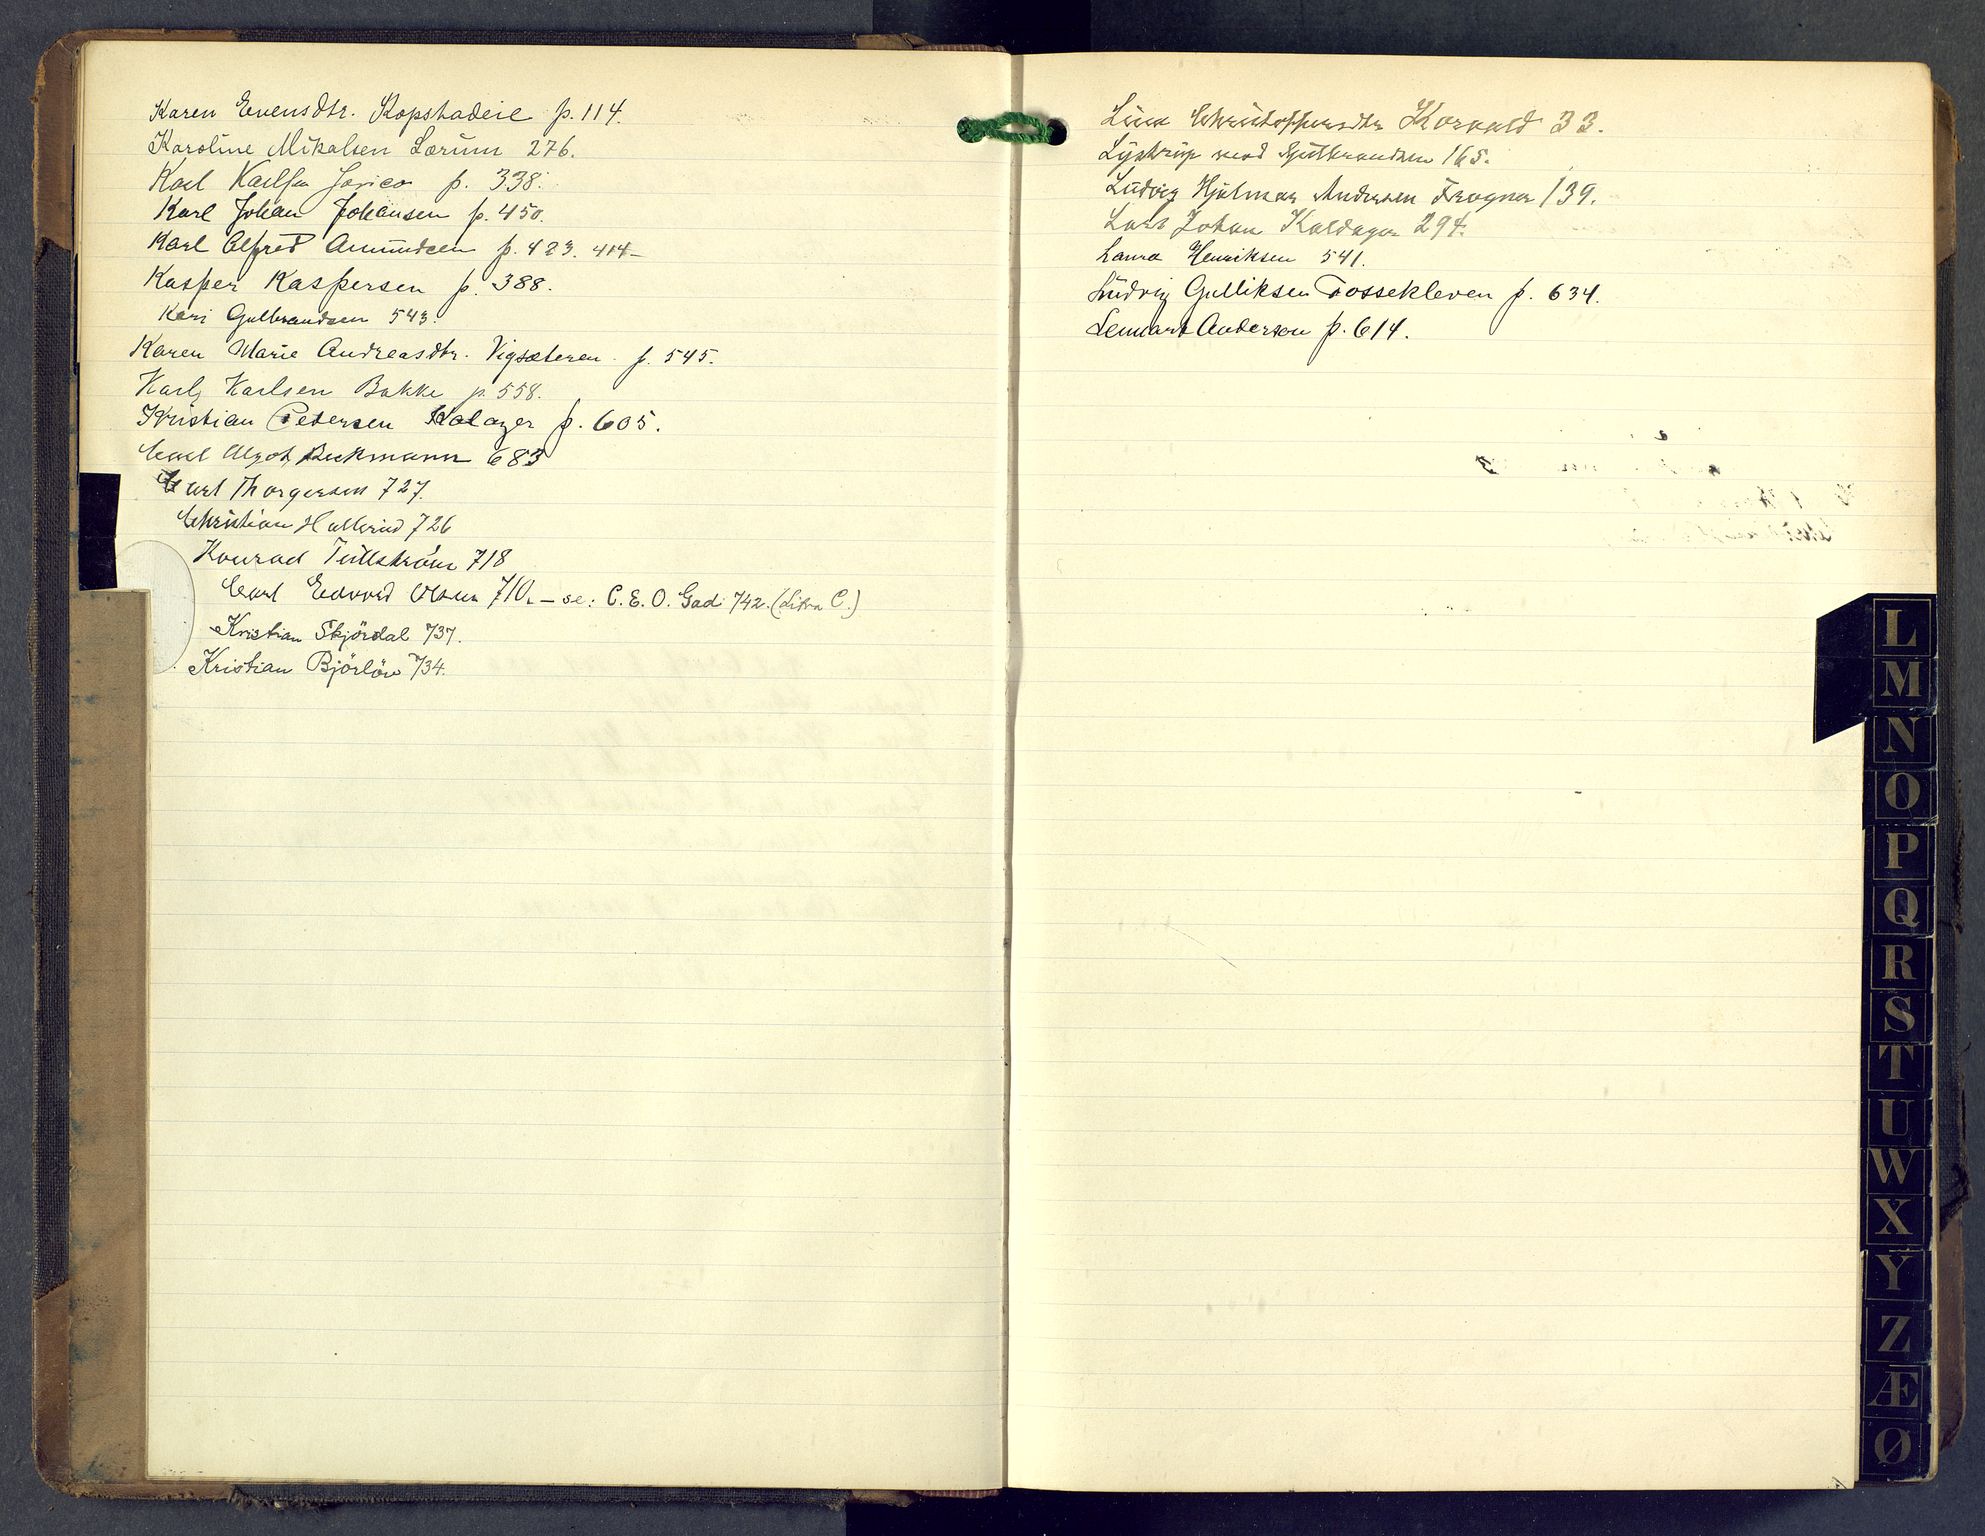 Karen Evensdtr. Kopstadeie p. 114.
Karoline Mikalsen Lørum 276.
Karl Karlsen Jerico p. 338.
Karl Johan Johansen p. 450.
Karl Alfred Amundsen p. 423. 414
Kasper Kaspersen p. 388.
Kari Gulbrandsen 543.
Karen Marie Andreasdtr. Vigsæteren p. 545.
Karl Karlsen Bakke p. 558.
Kristian Petersen Kolager p. 605.
Carl Algot Beckmann 683
Carl Thorgersen 727.
Christian Hallerud 726
Konrad Tullström 718
Carl Edvard Olsen 710. – se: C. E. O. Gadi 742. (Litra C.)
Kristian Skjördal 737.
Kristian Björlöw 734.
Lina Christoffersdtr Korvald 33.
Lystrup med Gulbrandsen 165.
Ludvig Hjalmar Andersen Frogner 139.
Lars Johan Kaldager 294.
Laura Henriksen 541.
Ludvig Gulliksen Fossekleven p. 634.
Lennart Anderson p. 614.
L
M
N
O
P
Q
R
S
T
U
W
X
Y
Z
Æ
Ø